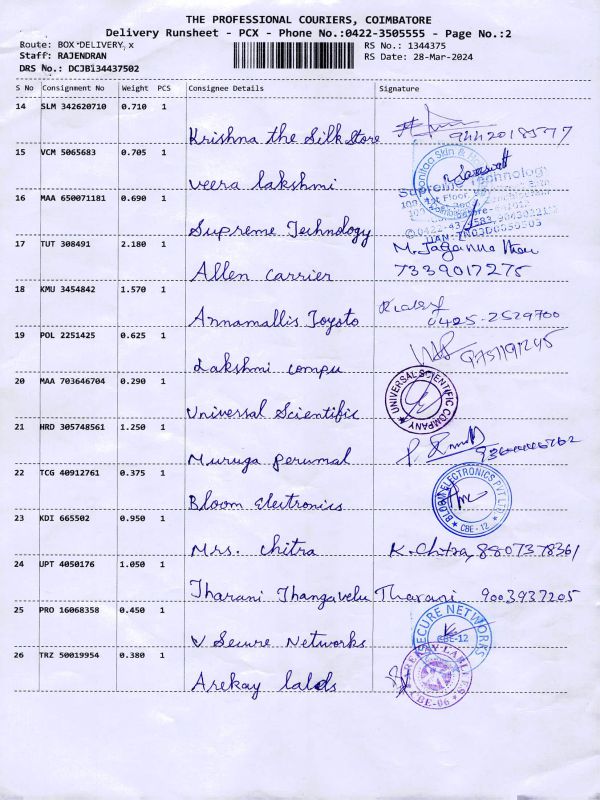 THE PROFESSIONAL COURIERS, COIMBATORE
Delivery Runsheet - PCX - Phone No.:0422-3505555 - Page No.:2
Route: BOX DELIVERY, x
RS No.: 1344375
Staff: RAJENDRAN
RS Date: 28-Mar-2024
DRS No.: DCJB134437502
S No Consignment No Weight PCS Consignee Details Signature
14 SLM 342620710 0.710 1
Krishna the Silk Store 9442018577
15 VCM 5065683 0.705 1
Veera lakshmi
16 MAA 650071181 0.690 1
Supreme Technology
Supreme Technology
17 TUT 308491 2.180 1
Allen carrier
7339017275
18 KMU 3454842 1.570 1
Annamallis Toyoto 0425-2529700
19 POL 2251425 0.625 1
Lakshmi compu 9751191245
20 MAA 703646704 0.290 1
Universal Scientific
UNIVERSAL SCIENTIFIC COMPANY
21 HRD 305748561 1.250 1
Muruga perumal
22 TCG 40912761 0.375 1
Bloom Electronics
BLOOM ELECTRONICS PVT LTD
CBE-12
23 KDI 665502 0.950 1
Mrs. chitra K. Chitra, 8807378361
24 UPT 4050176 1.050 1
Tharani Thangavelu Tharani 9003937205
25 PRO 16068358 0.450 1
V Secure Networks
SECURE NETWORKS
CBE-12
26 TRZ 50019954 0.380 1
Arekay
CBE-06